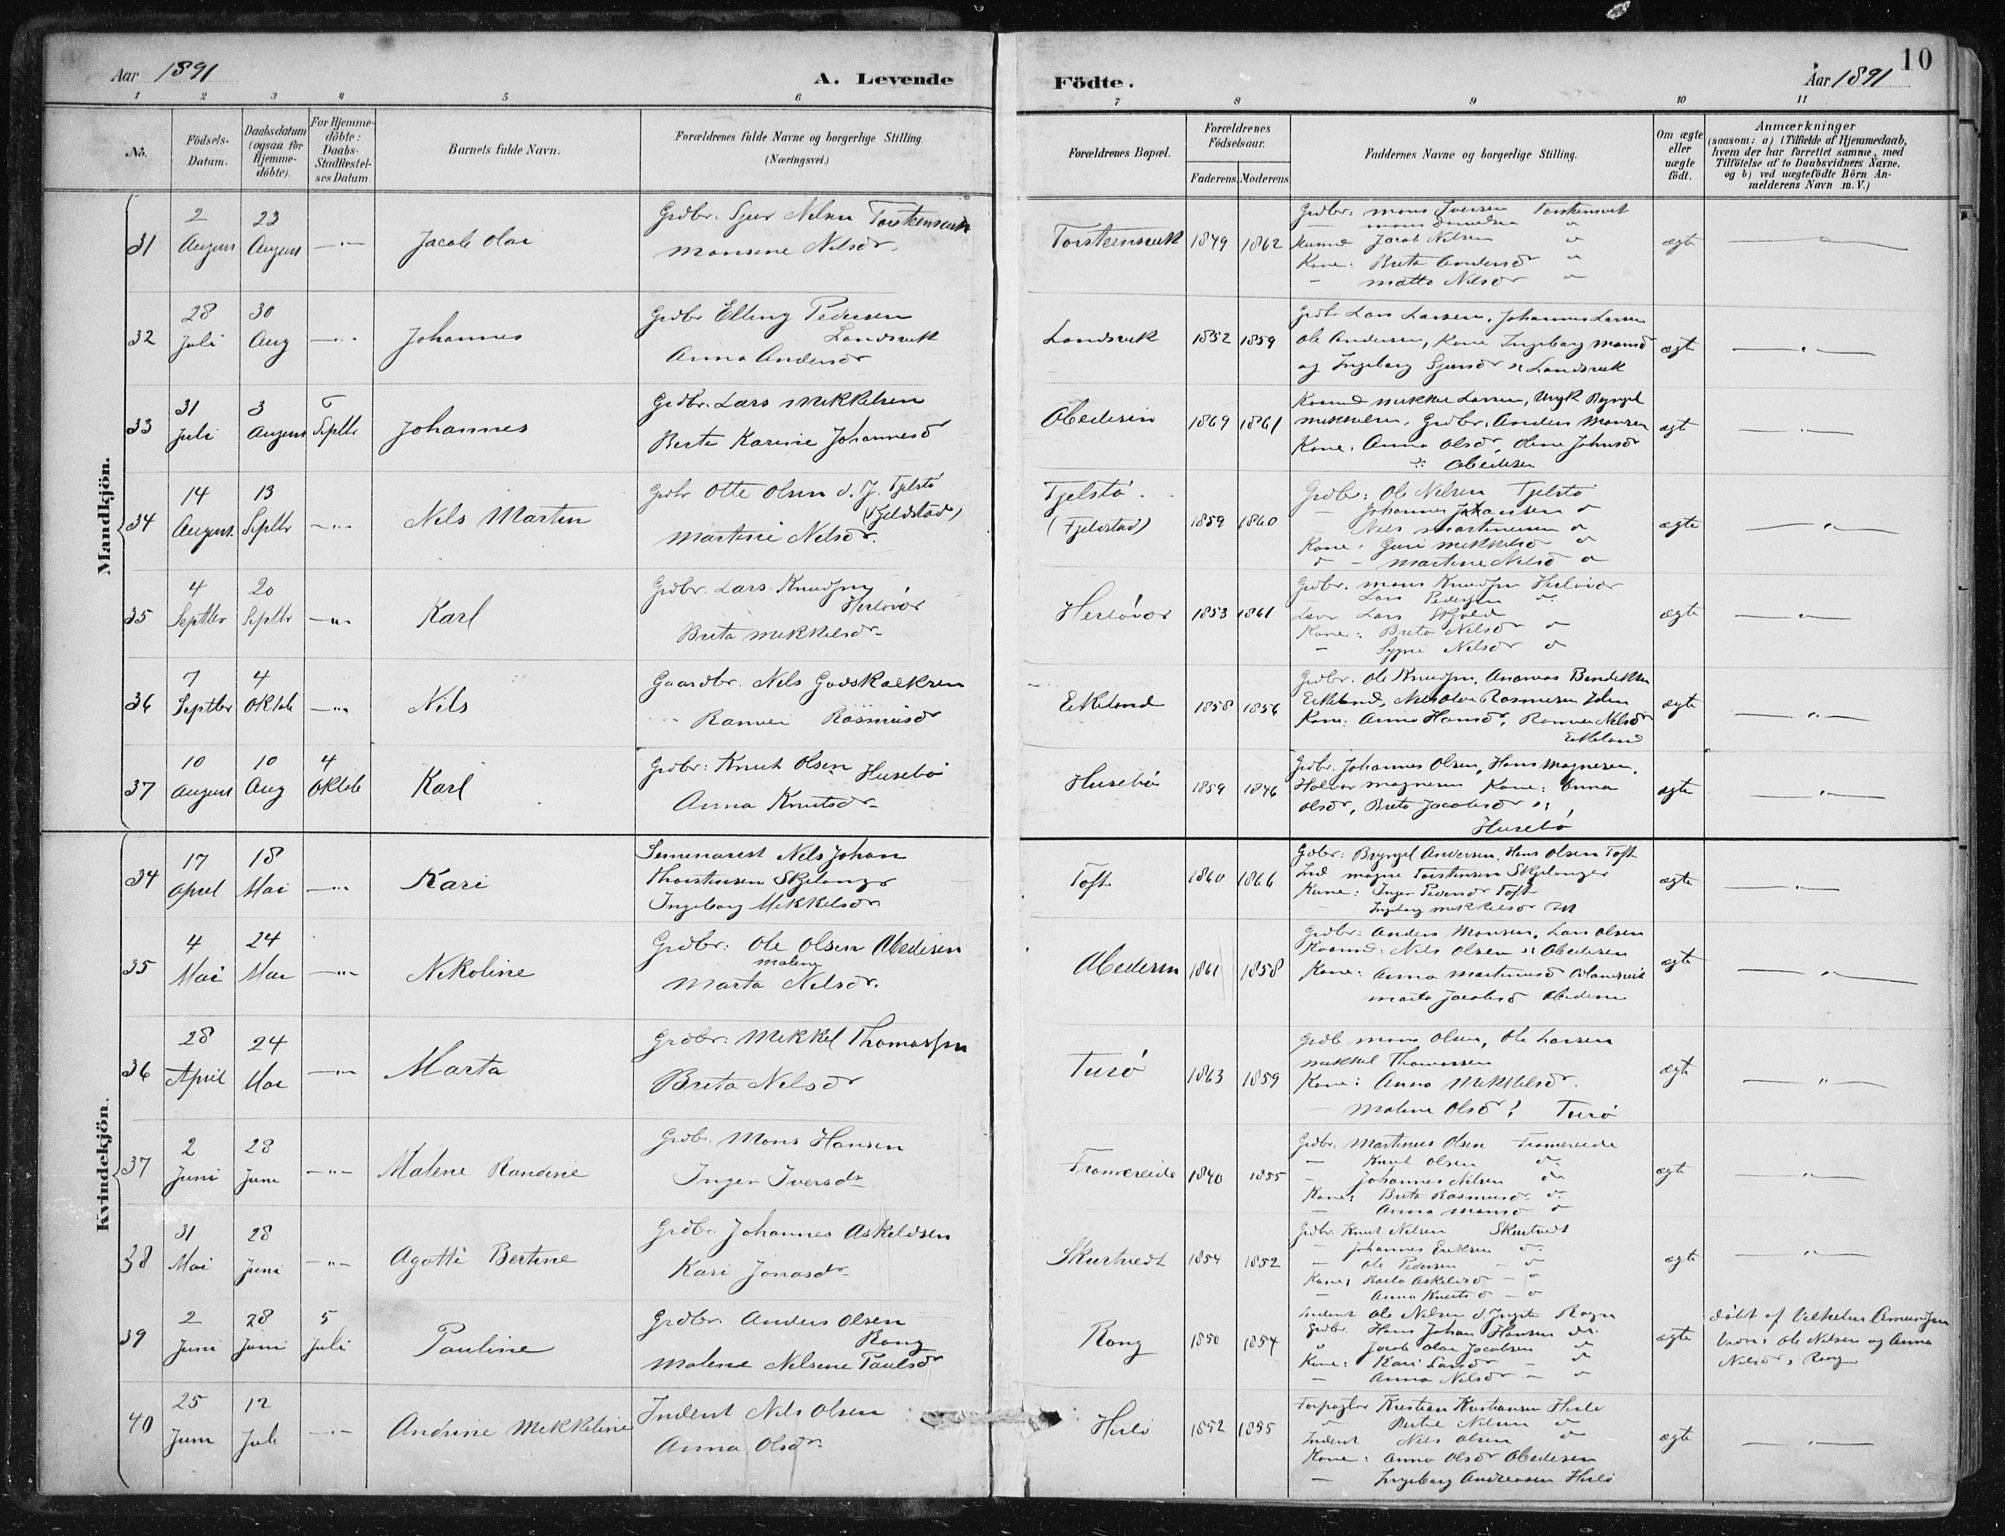 10
Aar 1891
A. Levende
Födte.
Aar 1891
1 2 3 4 5 6 7 8 9 10 11
No.
Födsels-
Datum.
Daabsdatum
(ogsaa for
Hjemme-
döbte).
For Hjemme-
döbte:
Daabs-
Stadfæstel-
ses Datum.
Barnets fulde Navn.
Forældrenes fulde Navne og borgerlige Stilling.
(Næringsvei.)
Forældrenes Bopæl.
Forældrenes
Födselsaar.
Faderens. Moderens.
Faddernes Navne og borgerlige Stilling.
Om ægte
eller
uægte
födt.
Anmærkninger
(saasom: a) i Tilfælde af Hjemmedaab,
hvem der har forrettet samme, med
Tilföielse af to Daabsvidners Navne.
og b) ved uægtefödte Börn An-
melderens Navn m. V.)
Mandkjön.
31
2
August
23
August
Jacob Olai
Grdbr. Sjur Nilsen Torsteinsvik
Monsine Nilsdr.
Torsteinsvik
1849 1862
Kone: Brita Andersdr
ægte
32
28
Juli
30
Aug
Johannes
Grdbr Elling Pedersen
Landsvik
Anna Andersdr
Landsvik
1852 1859
Grdbr Lars Larsen, Johannes Larsen
Ole Andersen, Kone Ingeborg Monsd
og Ingeborg Sjursdr Landsvik
ægte
33
31
Juli
3
August
6
Septbr
Johannes
Grdbr. Lars Mikkelsen
Berte Karine Johannesd
Abedisen
1869 1861
Mikkelsen, Grdbr. Anders Monsen
Kone. Anna Olsdr, Oline Johnsdr
Abedisen
ægte
34
14
August
13
Septbr
Nils Martin
Grdbr Otte Olsen d. y. Fjelstö
(Fjeldstad)
Martine Nilsdr.
Fjelstö.
(Fjeldstad)
1859 1860
Grdbr: Ole Nilsen Fjelstö
Johannes Johansen
Nils Martinusen
Kone: Guri Mikkelsd
Martine Nilsd
ægte
35
4
Septbr
20
Septbr
Karl
Grdbr. Lars Knudsen
Herlövær
Brita Mikkelsdr
Herlövær
1853 1861
Grdbr. Mons Knudsen Herlövær
Lars Pedersen
Kone: Brita Nilsdr
Nilsdr
ægte
36
7
Septbr
4
Oktob
Nils
Gaardbr. Nils Godskalksen
Ranvei Rasmusdr
Eikeland
1858 1856
Grdbr. Ole Knudsen. Andreas Bendiksen
Eikeland, Rasmusen
Kone: Anna Hansdr, Ranvei Nilsdr
Eikeland
ægte
37
10
August
10
Aug
4
Oktob
Karl
Grdbr: Knut Olsen Husebö
Anna Knutsdr
Husebö
1859 1846
Grdbr. Johannes Olsen, Hans Magnesen,
Halvor Magnesen Kone: Anna
Olsdr, Brita Jacobsdr
Husebö
ægte
Kvindekjön.
34
17
April
18
Mai
Kari
Seminarist Nils Johan
Thorsteinsen Skjelanger
Ingeborg Mikkelsdr
Toft
1860 1866
Grdbr: Brynjel Andersen, Hans Olsen Toft
Ind Magne Torsteinsen Skjelanger
Kone: Inger Pedersdr Toft
Ingeborg Mikkelsdr
ægte
35
4
Mai
24
Mai
Nikoline
Grdbr: Ole Olsen Abedisen
Malene
Marta Nilsdr.
Abedisen
1861 1858
Grdbr: Anders Monsen, Lars Olsen
Nils Olsen Abedisen
Kone: Anna Martinusd
Marta Jacobsd Abedisen
ægte
36
28
April
24
Mai
Marta
Grdbr: Mikkel Thomassen
Brita Nilsdr
Turö
1863 1859
Grdb Mons Olsen, Ole Larsen
Mikkel Thomassen
Kone: Anna Mikkelsdr.
Malene Olsd Turö
ægte
37
2
Juni
28
Juni
Malene Randine
Grdbr. Mons Hansen
Inger Iversdr
Tromereide
1840 1855
Grdbr. Martinus Olsen Tromereide
Knut Olsen
Johannes Nilsen
Kone: Brita Rasmusdr
Anna Monsd
ægte
38
31
Mai
28
Juni
Agatte Bertine
Grdbr. Johannes Askeldsen
Kari Jonasdr
Skurtvedt
1854 1852
Grdbr. Knut Nilsen Skurtvedt
Johannes Eriksen
Ole Pedersen
Kone: Askeldsd
Anna Knutsd
ægte
39
2
Juni
28
Juni
5
Juli
Pauline
Grdbr. Anders Olsen
Rong
Malene Nilsine Paulsdr
Rong
1850 1854
Indent Ole Nilsen d. yngste Rong
Grdbr. Hans Johan Hansen
Jacob Olai Jacobsen
Kone: Kari Larsdr
Anna Nilsdr
ægte
döbt af Vilhelm Amundsen
Vidner Ole Nilsen og Anna
Nilsdr, Rong
40
25
Juni
12
Juli
Andrine Mikkeline
Indent Nils Olsen
Anna Olsdr
Herlö
1852 1855
Forpagter Kristian Kristiansen Herlö
Bertel Nilsen
Indent Nils Olsen
Kone: Anna Olsdr Abedisen
Ingeborg Andreasen Herlö
ægte